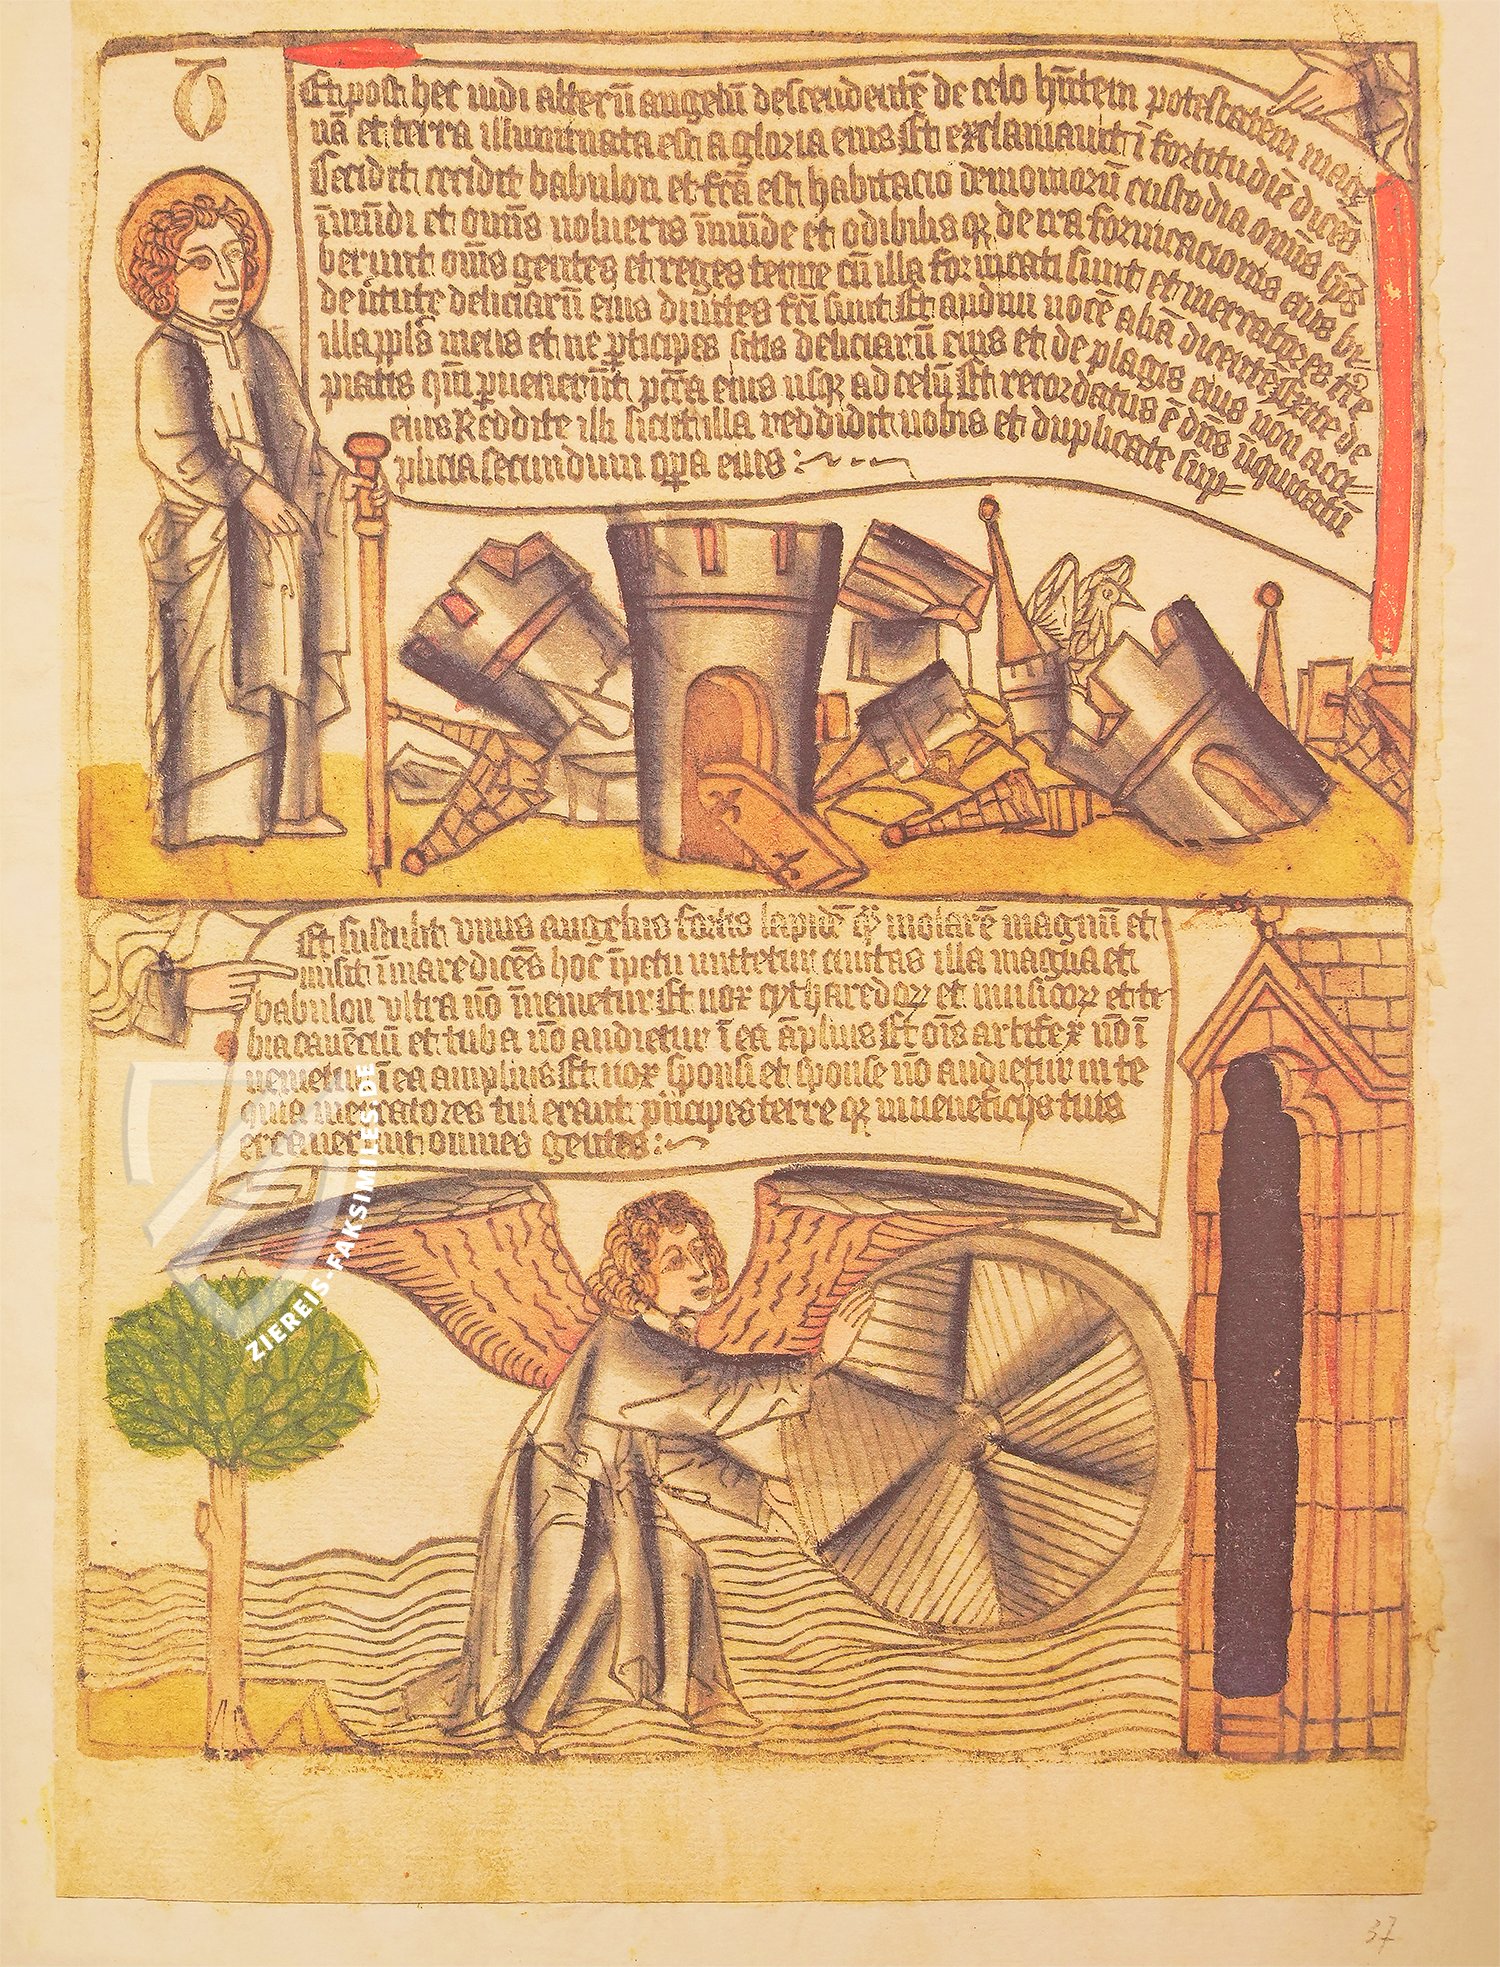 Et post hec uidi alterū angelū descendentē de celo hn̄tem potestatem mag
nā et terra illuminata est a gloria eius Et exclamauit ī fortitudīe dicēs
Cecidit cecidit babulon et fc̄a est habitacio demoniorū custodia om̄īs sp̄s
īmūdi et om̄īs uolucris īmūde et odibilis qꝫ de ira fornicacionis eius bi
berunt om̄s gentes et reges terre cū illa fornicati sunt et mercatores tr̄e
de ūtute deliciarū eius diuites fc̄i sunt Et audiui uocē aliā dicentē Exite de
illa ppl̄s meus et ne p̄ticipes sitis deliciarū eius et de plagis eius non acci
piatis qm̄ puenerūt pcc̄a eius usqꝫ ad celū Et recordatus ē dn̄s īiquitatū
eius Reddite illi sicut illa reddidit uobis et duplicate dup
plicia secundum opa eius :
Et sustulit vnus angelus fortis lapidē qͣ̄i molarē magnū et
misit ī mare dicēs hoc īpetu mittetur ciuitas illa magna et
babulon vltra nō īuenietur Et uox cytharedoꝝ et musicoꝝ et ti
bia canēciū et tuba nō audietur ī ea āplius Et oīs artifex nō ī
uenietur ī ea amplius Et uox sponsi et sponse nō audietur in te
quia mercatores tui erant p̄ncipes terre qꝫ in ueneficijs tuis
errauerunt omnes gentes :
ZIEREIS-FAKSIMILES.DE
37